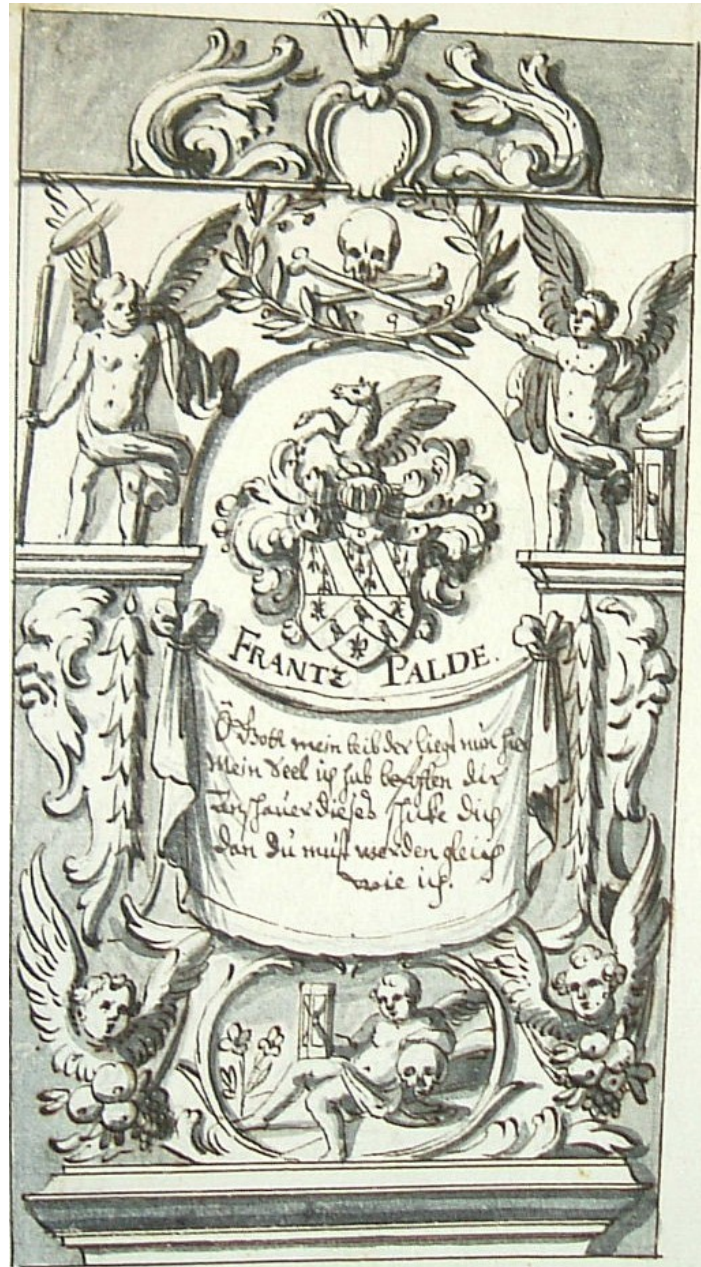 FRANTZ PALDE.
O Gott mein leib der liegt nun hier
Mein Seel ich hab befohlen dir
Anschauer dieses schicke dich
dan du must werden gleich
wie ich.